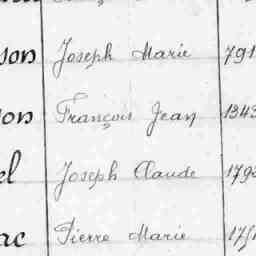 son Joseph Marie 791
son François Jean 1343
el Joseph Claude 179
ac Pierre Marie 175